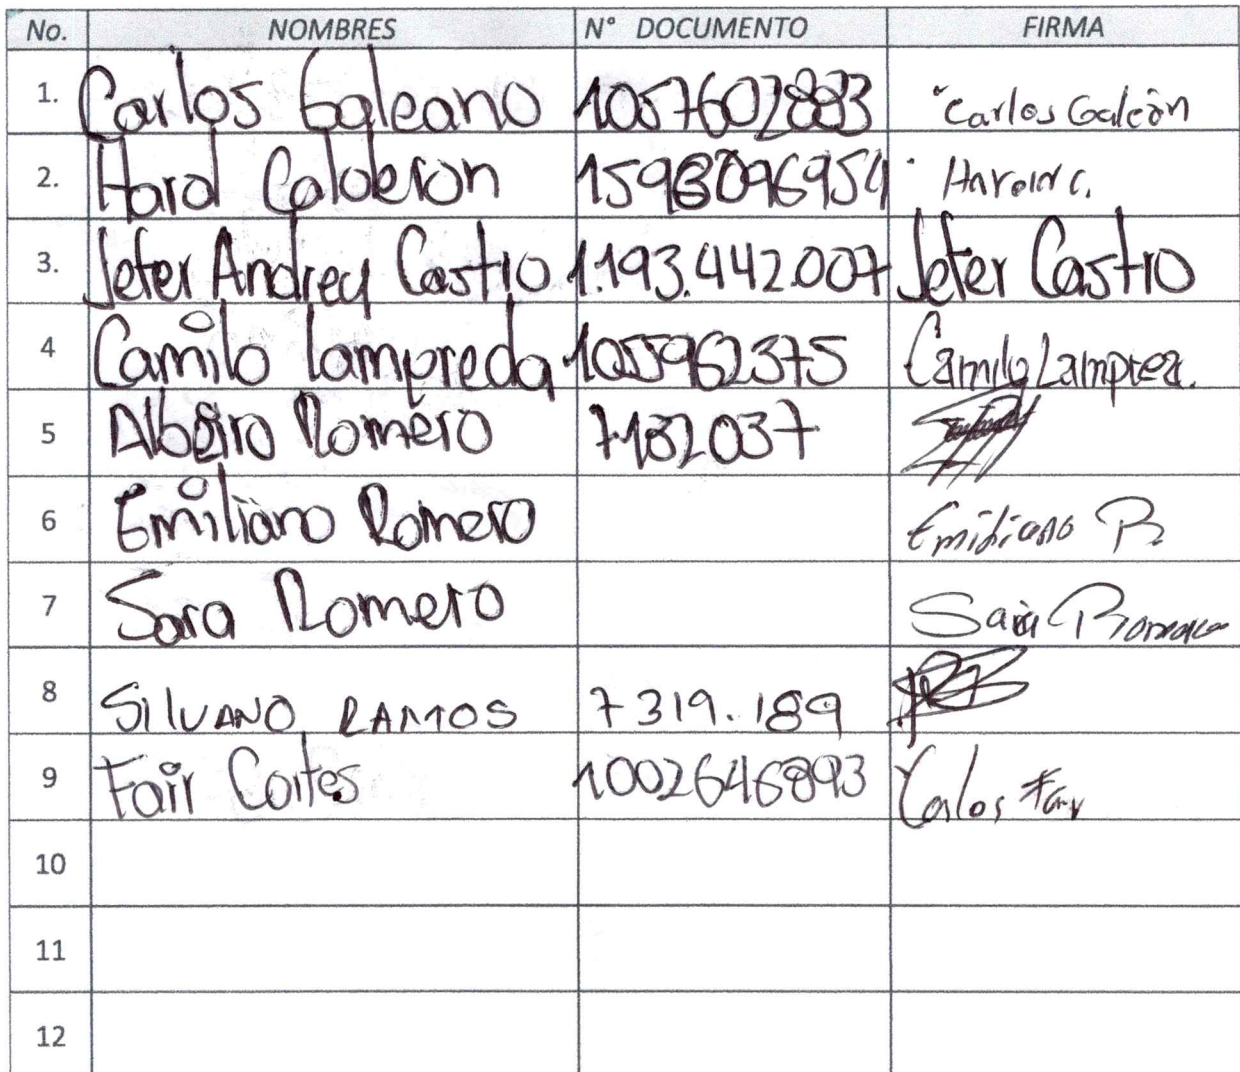 No. NOMBRES N° DOCUMENTO FIRMA
1. Carlos Galeano 1057602883 Carlos Galeón
2. Harol Calderon 1598096954 Harold C.
3. Jefer Andrey Castro 1.193.442.007 Jefer Castro
4 Camilo Lampreda 1055962375 Camilo Lamprea.
5 Albeiro Romero 7182037
6 Emiliano Romero Emiliano R
7 Sara Romero Sara Romero
8 SILVANO RAMOS 7319.189
9 Fair Cortes 1002646893 Carlos Fair
10
11
12